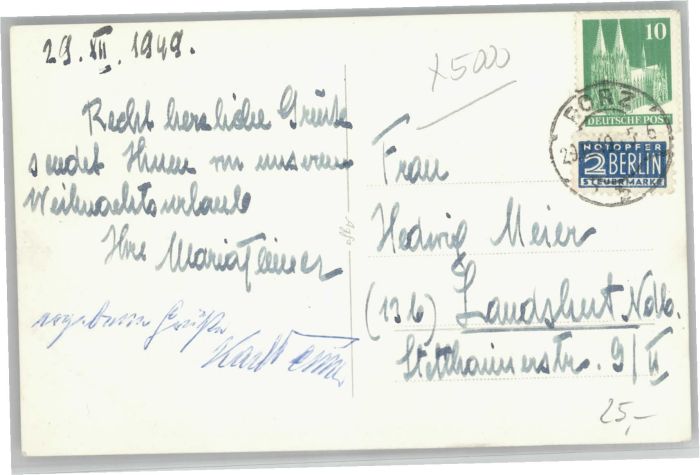 29. XII. 1949.
Recht herzliche Grüße
sendet Ihnen in unserem
Weihnachtsurlaub
Ihre Maria
ergebene Grüße
Karl
x5000
10
DEUTSCHE POST
NOTOPFER
2 BERLIN
STEUERMARKE
Frau
Hedwig Meier
(13b) Landshut Ndb.
Stetthaimerstr. 9/II
25,-